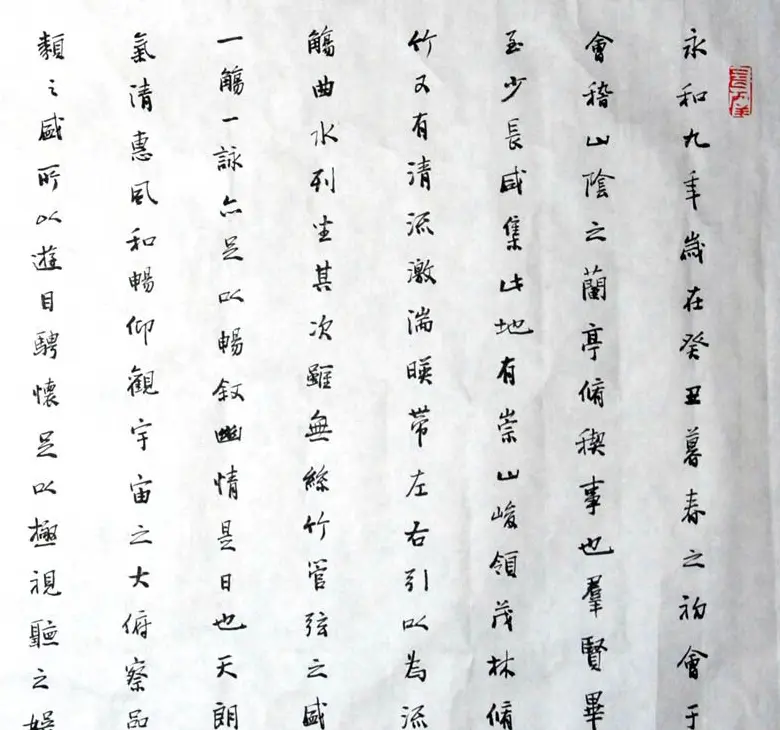 永和九年歲在癸丑暮春之初會于
會稽山陰之蘭亭脩稧事也羣賢畢
至少長咸集此地有崇山峻領茂林脩
竹又有清流激湍暎帶左右引以為流
觴曲水列坐其次雖無絲竹管弦之盛
一觴一詠亦足以暢敘幽情是日也天朗
氣清惠風和暢仰觀宇宙之大俯察品
類之盛所以遊目騁懷足以極視聽之娛